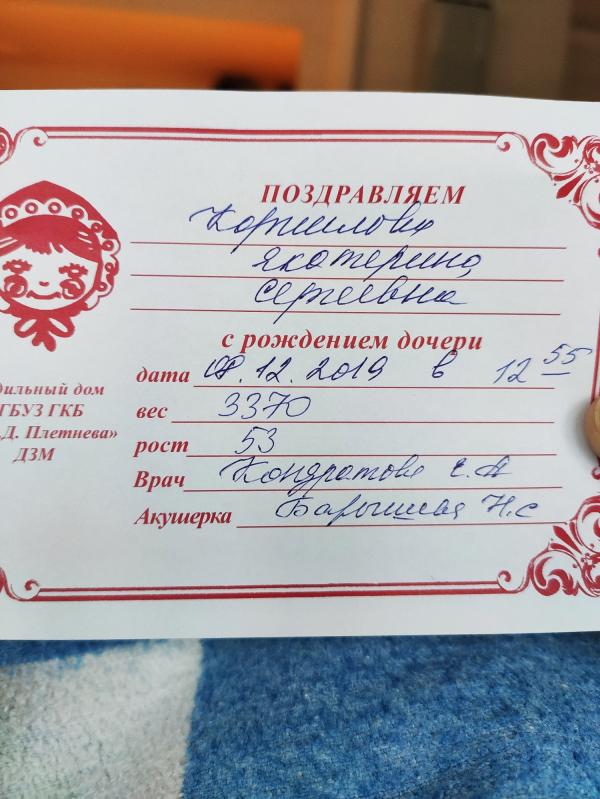 ПОЗДРАВЛЯЕМ
Екатерина
Сергеевна
с рождением дочери
дата .12.2019 в 12 55
вес 3370
рост 53
Врач Кондратова Е.А
Акушерка Н.С
дильный дом
ГБУЗ ГКБ
.Д. Плетнева»
ДЗМ